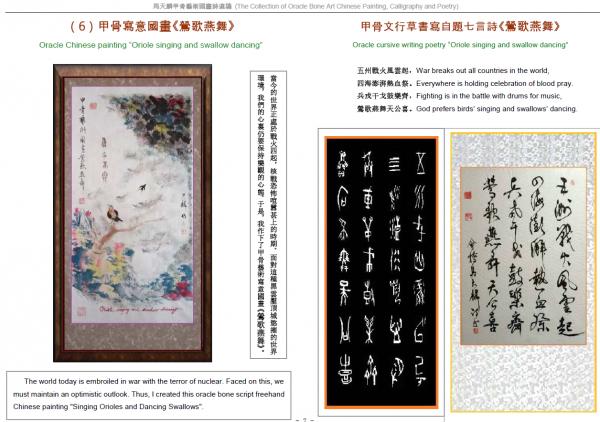 周天麟甲骨藝術國畫詩選議 (The Collection of Oracle Bone Art Chinese Painting, Calligraphy and Poetry)
(6) 甲骨寫意國畫《鶯歌燕舞》
Oracle Chinese painting "Oriole singing and swallow dancing"
當今的世界正處於戰火四起,核戰恐怖喧囂甚上的時期。面對這種黑雲壓頂城慾摧的世界
環境,我們的心裏仍要保持樂觀的心態。于是,我作下了甲骨藝術寫意國畫《鶯歌燕舞》。
Oriole singing and swallow dancing
The world today is embroiled in war with the terror of nuclear. Faced on this, we
must maintain an optimistic outlook. Thus, I created this oracle bone script freehand
Chinese painting "Singing Orioles and Dancing Swallows".
甲骨文行草書寫自題七言詩《鶯歌燕舞》
Oracle cursive writing poetry "Oriole singing and swallow dancing"
五州戰火風雲起, War breaks out all countries in the world,
四海澎湃熱血祭。 Everywhere is holding celebration of blood pray.
兵戎干戈鼓樂齊, Fighting is in the battle with drums for music,
鶯歌燕舞天公喜。 God prefers birds' singing and swallows' dancing.
五洲戰火風雲起
四海澎湃熱血祭
兵戎干戈鼓樂齊
鶯歌燕舞天公喜
- 7 -